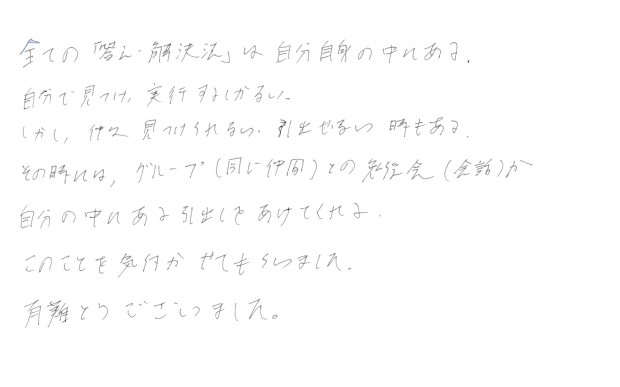 全ての「答え・解決法」は自分自身の中にある。
自分で見つけ、実行するしかない。
しかし、仲々見つけられない、引出せない時もある。
その時には、グループ(同じ仲間)との勉強会(会話)が
自分の中にある引出しをあけてくれる。
このことを気付かせてもらいました。
有難とうございました。